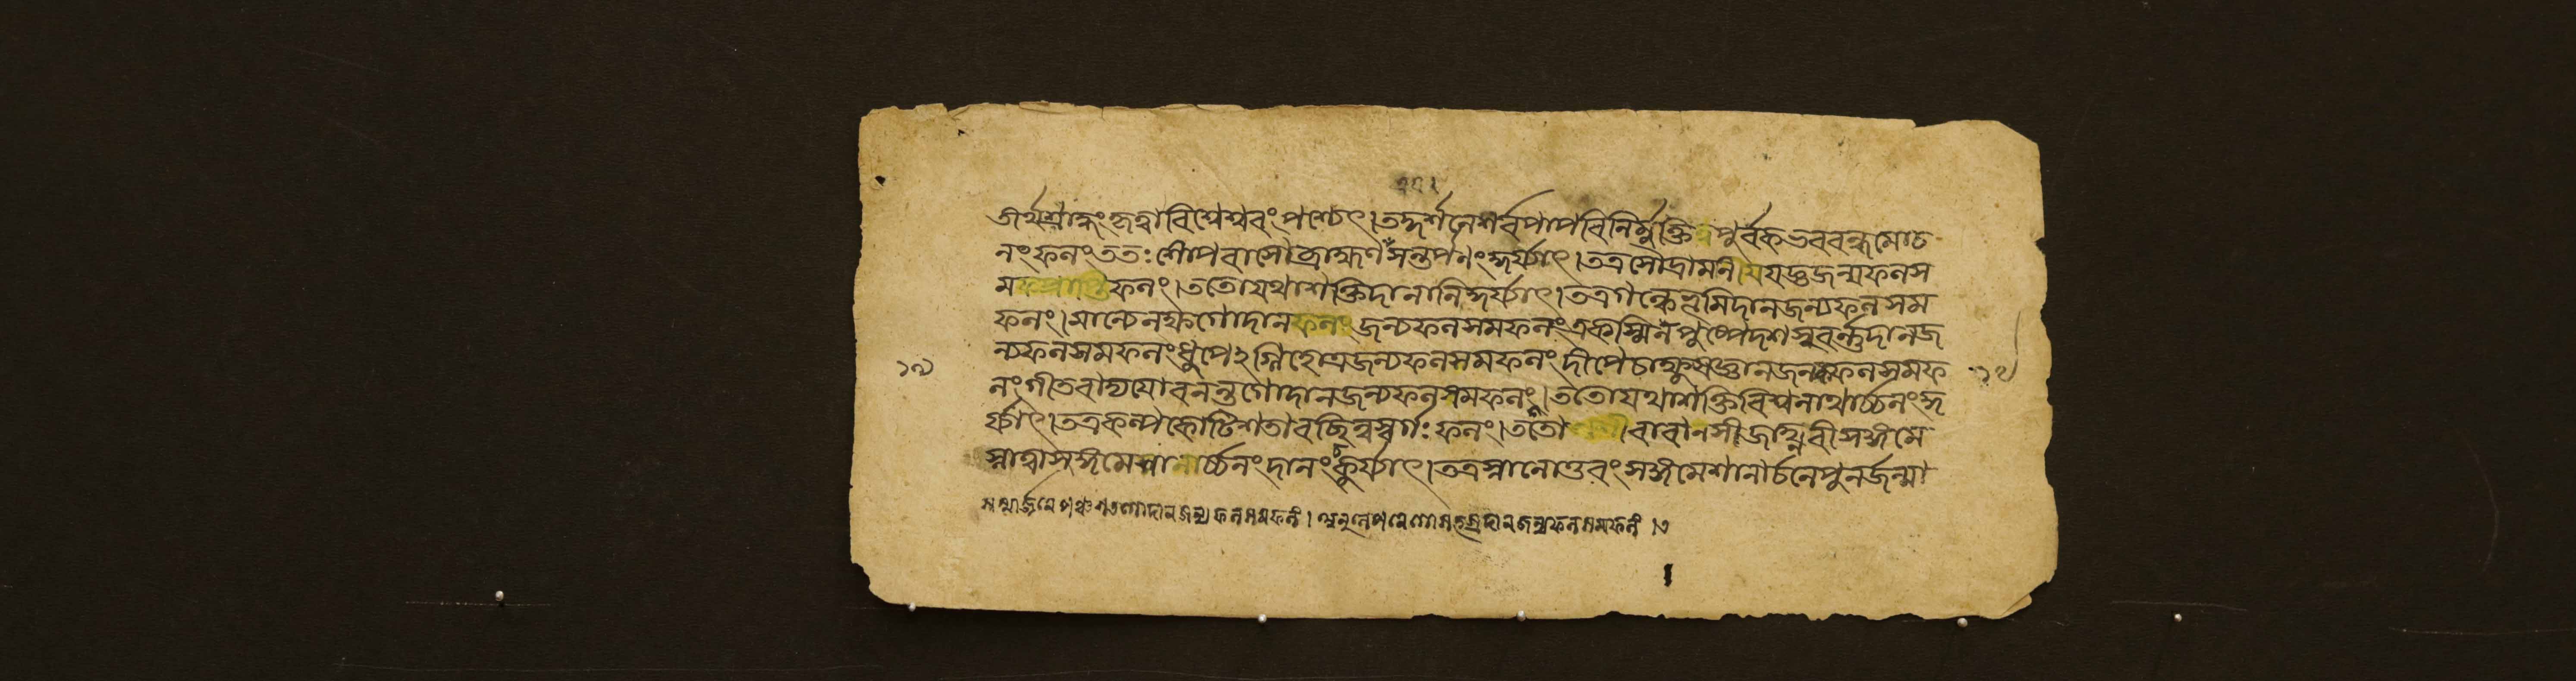 তীর্থশ্রাদ্ধং কৃত্বা বিশ্বেশ্বরং পশ্যেৎ । তদ্দর্শনে শর্বপাপবিনির্মুক্তি পুর্বক ভববন্ধমোচ
নং ফলং ততঃ শোপবাসো ব্রাহ্মণসন্তর্পনং কুর্য্যাৎ । তত্র সৌত্রামনীযযজ্ঞজন্মফলস
মফলং । ততো যথাশক্তি দানানি কুর্য্যাৎ । তত্র গন্ধে ভূমিদানজন্যফলসম
ফলং । মাল্যেন লক্ষগোদানফলং জন্যফলসমফলং একস্মিন পুষ্পে দশসুবর্ন্নদানজ
ন্যফলসমফলং ধুপে ২গ্নিহোত্রজন্যফলসমফলং দীপে চাক্ষুসজ্ঞানজন্যফলসমফ
১৭
লং গীতবাদ্যযোরনন্তগোদানজন্যফলসমফলং । ততো যথাশক্তি বিশ্বনাথার্চ্চনং কু
র্য্যাৎ । তত্র কল্পকোটিশতাবচ্ছিন্ন স্বর্গঃ ফলং । ততো বারানসী জাহ্নবী সঙ্গমে
স্নাত্বা সঙ্গমেশানার্চ্চনং দানং কুর্য্যাৎ । তত্র স্নানোত্তরং সঙ্গমেশানার্চনে পুনর্জন্মা
সম্মার্জ্জনে পঞ্চশতগোদানজন্যফলসমফলং । অনুলেপনে গোসহস্রদানজন্যফলসমফলং । এ